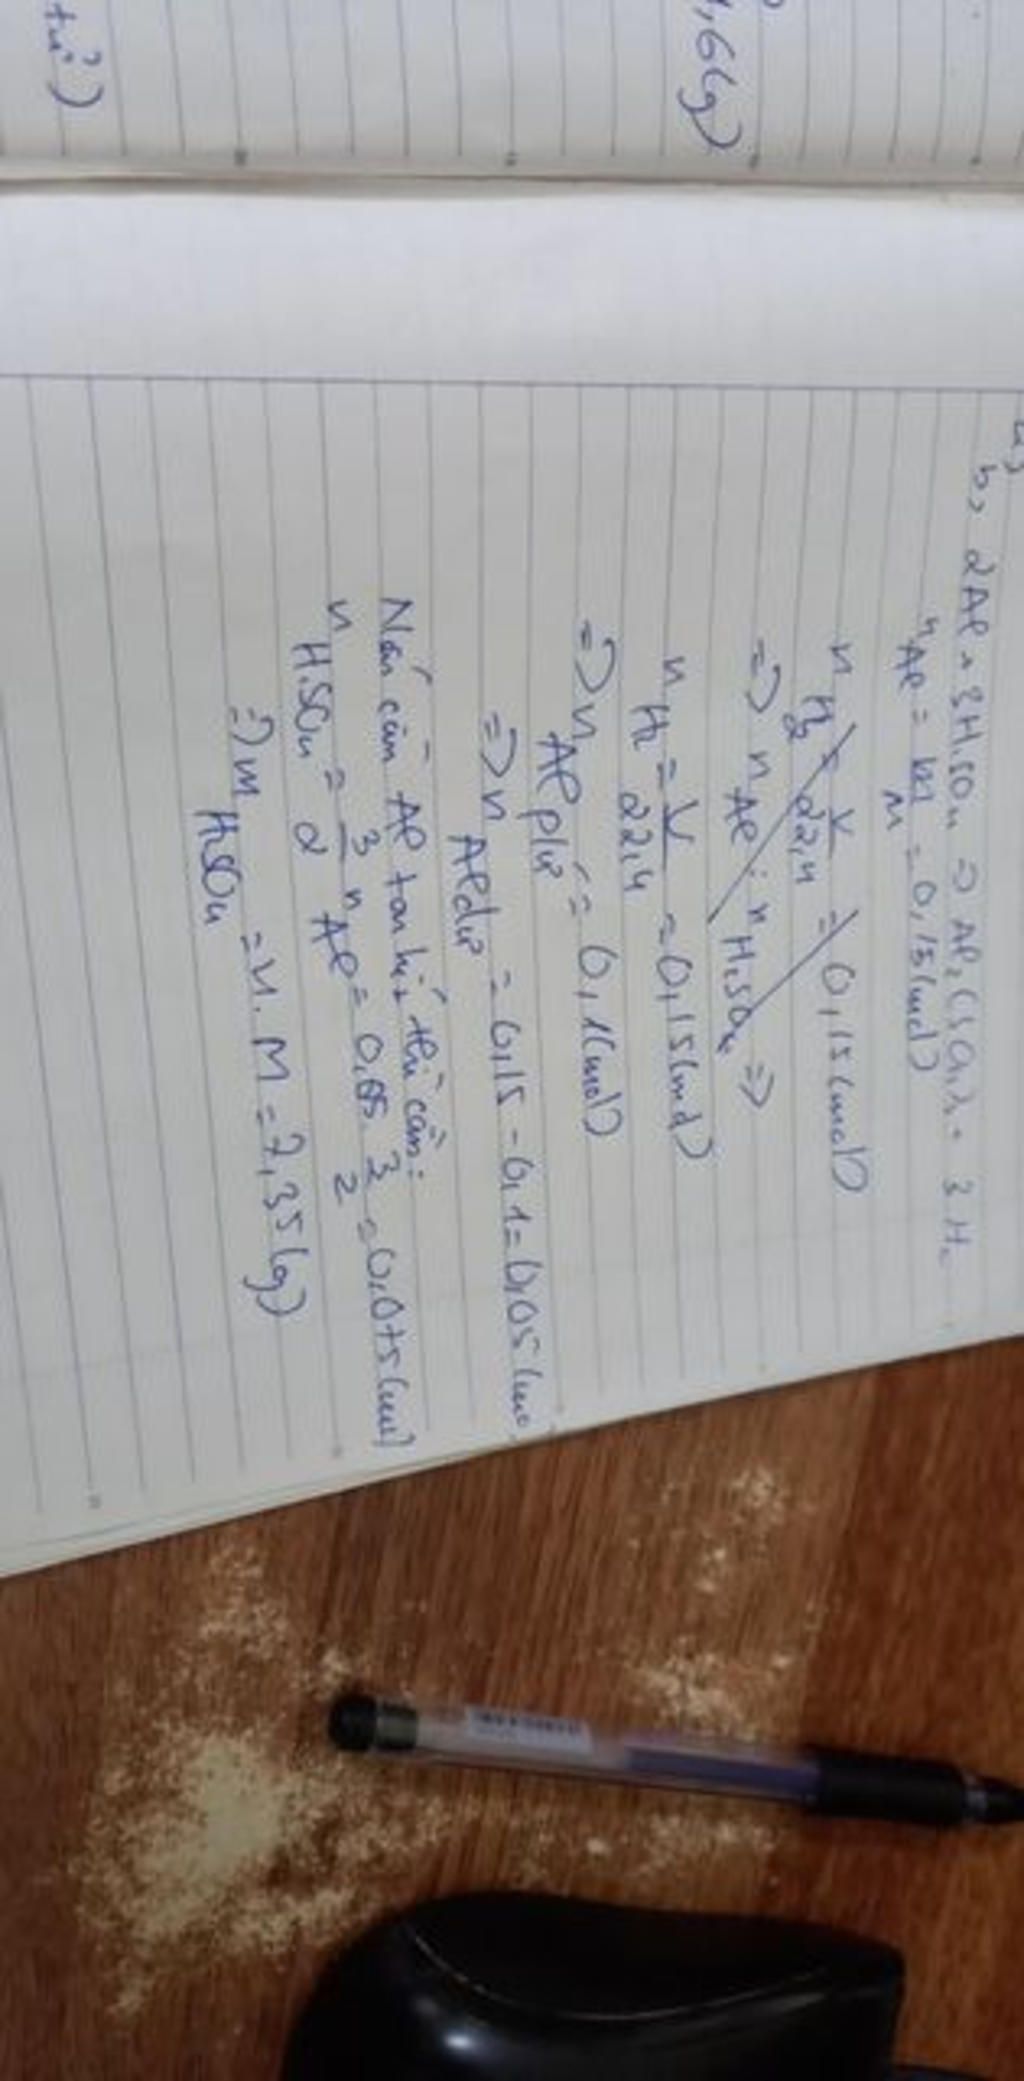 ,6(g)
b, 2Al + 3H₂SO₄ => Al₂(SO₄)₃ + 3H₂
nAl = m/M = 0,15(mol)
nH₂ = V/22,4 = 0,15(mol)
=> nAl : nH₂SO₄ =>
nH₂ = V/22,4 = 0,15(mol)
=> nAl pứ = 0,1(mol)
=> nAl dư = 0,15 - 0,1 = 0,05(mo
Nếu cần Al tan hết thì cần:
nH₂SO₄ = 3/2 nAl = 0,05 . 3/2 = 0,075(mol)
=> mH₂SO₄ = n.M = 7,35(g)